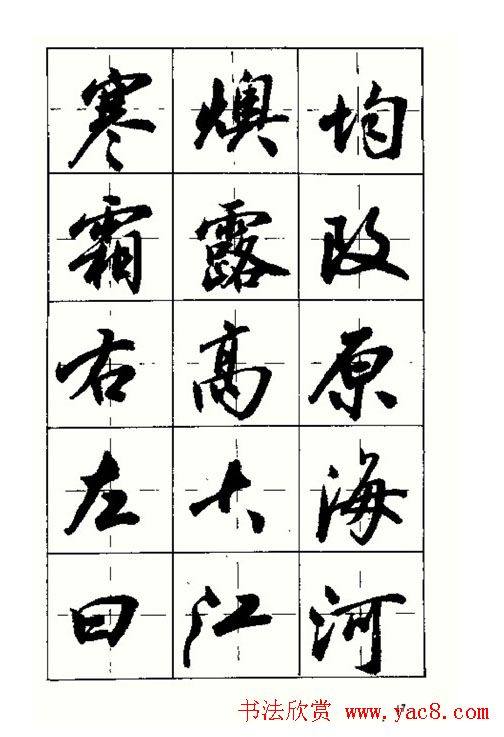 寒燠均
霜露改
右高原
左大海
曰江河
书法欣赏 www.yac8.com